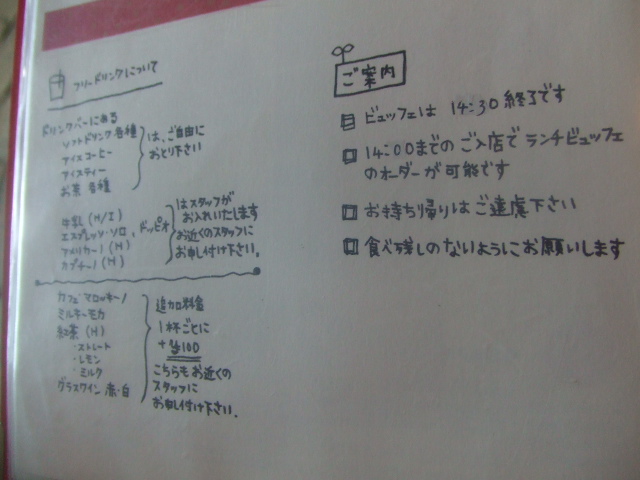 フリードリンクについて
ドリンクバーにある
ソフトドリンク各種
アイスコーヒー
アイスティー
お茶 各種
は、ご自由に
おとり下さい
牛乳 (H/I)
エスプレッソ・ソロ、ドッピオ
アメリカーノ (H)
カプチーノ (H)
はスタッフが
お入れいたします
お近くのスタッフに
お申し付け下さい。
カフェマロッキーノ
ミルキーモカ
紅茶 (H)
・ストレート
・レモン
・ミルク
グラスワイン 赤・白
追加料金
1杯ごとに
+¥100
こちらもお近くの
スタッフに
お申し付け下さい.
ご案内
ビュッフェは 14:30 終了です
14:00までの ご入店で ランチビュッフェ
のオーダーが可能です
お持ち帰りは ご遠慮下さい
食べ残しのないようにお願いします